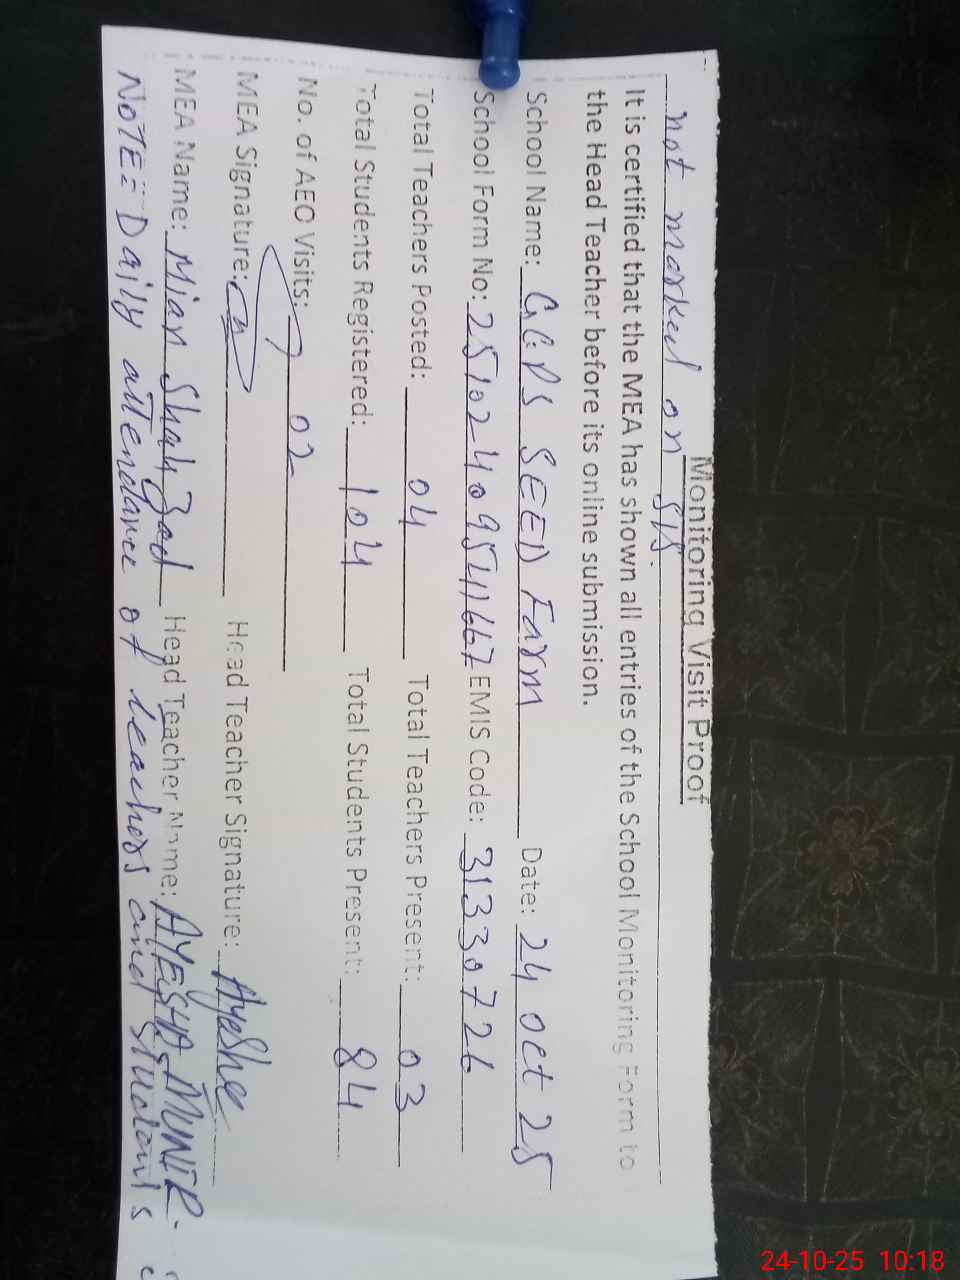 Monitoring Visit Proof
not marked on SIS.
It is certified that the MEA has shown all entries of the School Monitoring Form to
the Head Teacher before its online submission.
School Name: GGPS SEED Farm Date: 24 Oct 25
School Form No: EMIS Code: 31330726
Total Teachers Posted: 04 Total Teachers Present: 03
Total Students Registered: 104 Total Students Present: 84
No. of AEO Visits: 02
MEA Signature: Head Teacher Signature: Ayesha
MEA Name: Mian Shahzad Head Teacher Name: AYESHA MUNIR
NOTE:- Daily attendance of teachers and students
24-10-25 10:18